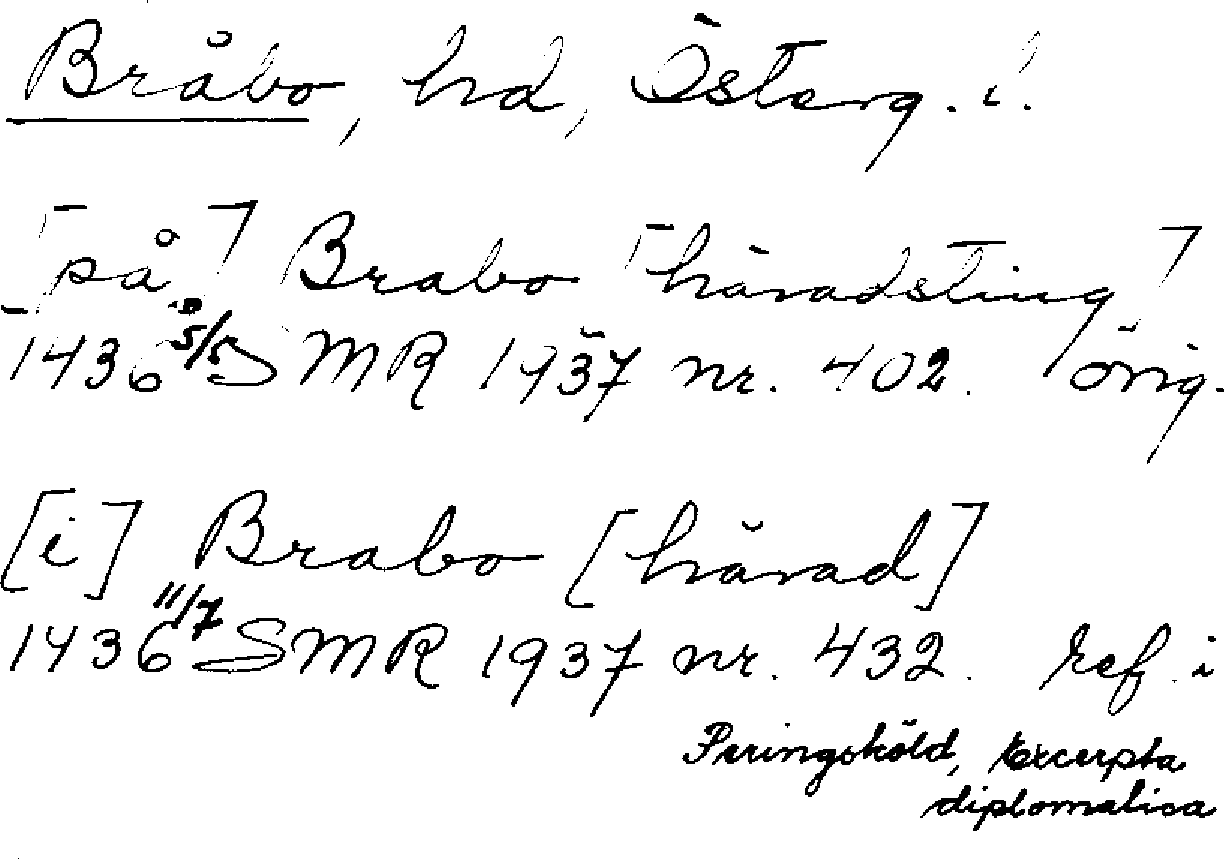 Bråbo, hd, Österg. l.
[på] Brabo [häradsting]
1436 5/5 SMR 1937 nr. 402. orig.
[i] Brabo [härad]
1436 11/7 SMR 1937 nr. 432. ref. i
Peringsköld, Excerpta
diplomatica